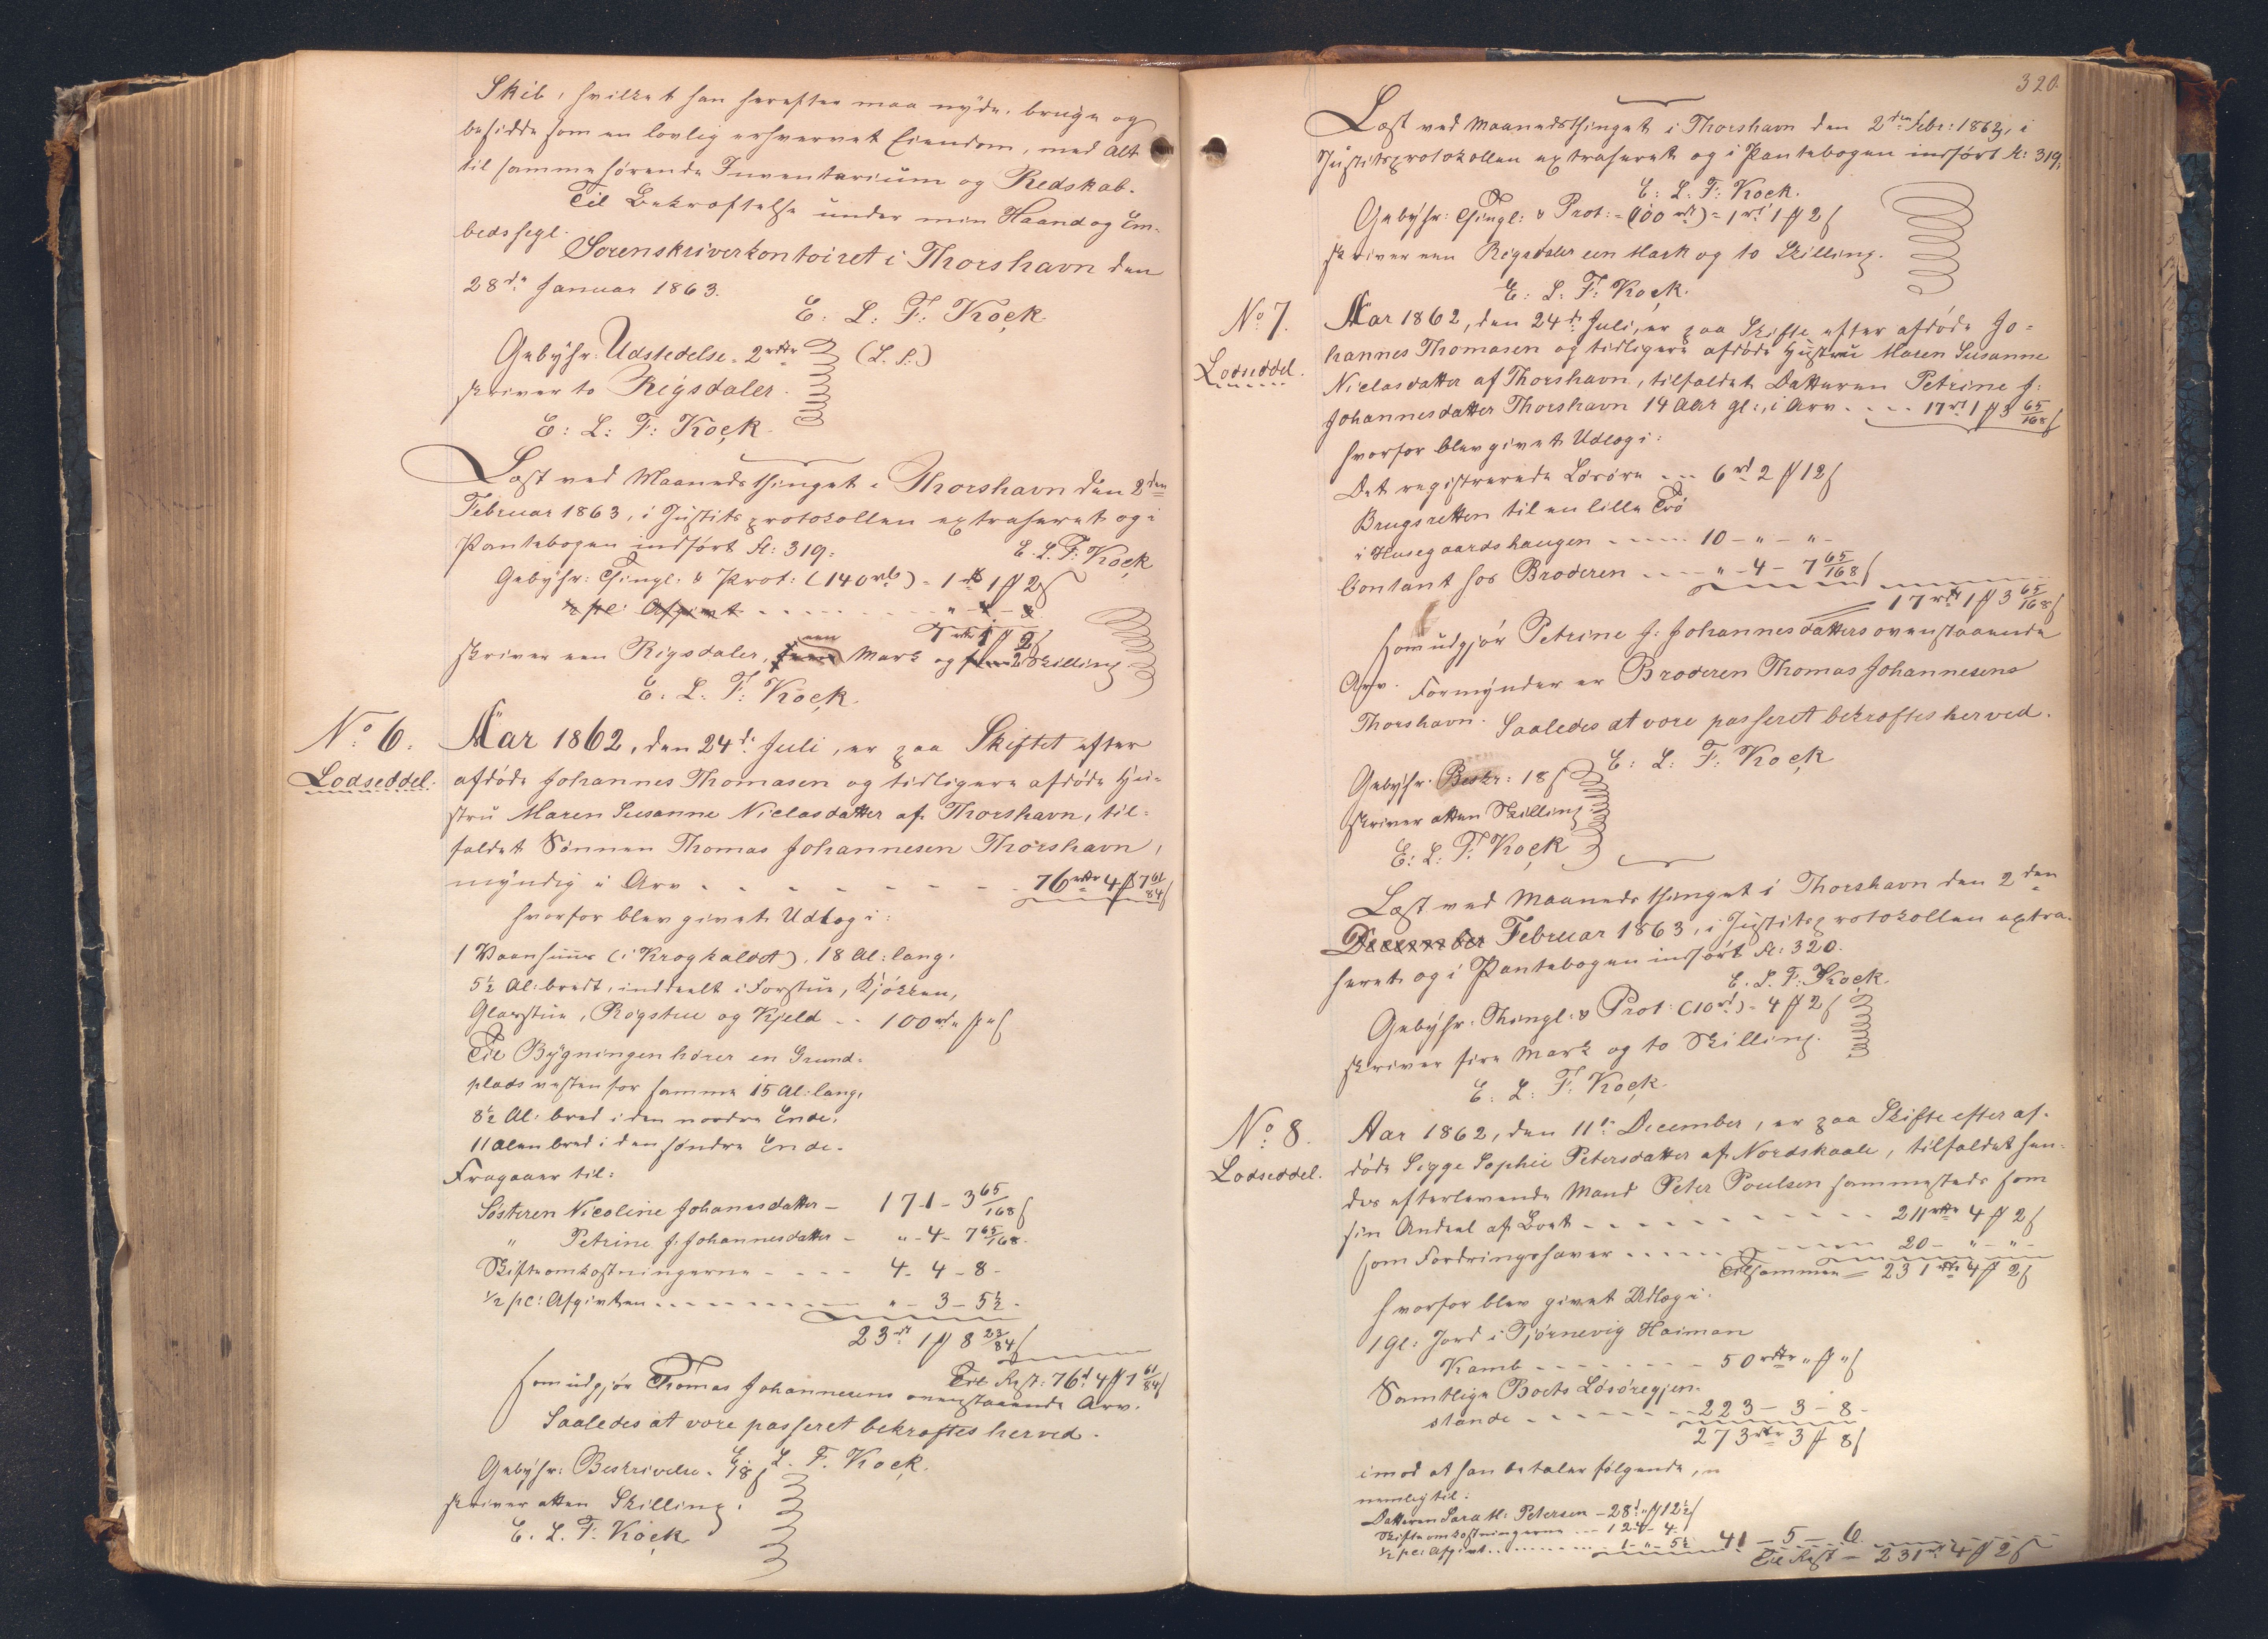 Skib, hvilket han herefter maa nyde, bruge og
besidde som en lovlig erhvervet Eiendom, med Alt
til samme hørende Inventarium og Redskab.
Til Bekræftelse under min Haand og Em-
bedssegl.
Sorenskriverkontoiret i Thorshavn den
28de Januar 1863.
E: L: F: Kock
Gebyhr: Udstedelse. 2 rdlr (L.S.)
skriver to Rigsdaler.
E: L: F: Kock
Læst ved Maanedsthinget i Thorshavn den 2den
Februar 1863, i Justitsprotokollen extraheret og i
Pantebogen indført fl: 319.
E. L. F: Kock
Gebyhr: Thingl: & Prot: (140 rd) = 1 rd 1 ℳ 2 ß
½ pC: Afgivt
1 rdl 1 ℳ 2 ß
skriver een Rigsdaler, een Mark og 2 Skilling
E. L. F: Kock.
No 6.
Lodseddel.
Aar 1862, den 24de Juli, er paa Skiftet efter
afdøde Johannes Thomasen og tidligere afdøde Hu-
stru Maren Susanne Niclasdatter af Thorshavn, til-
faldet Sønnen Thomas Johannesen Thorshavn,
myndig i Arv - - - - 76 rdlr 4 ℳ 7 61/84 ß
hvorfor blev givet Udlog i:
1 Vaanhuus (i Krogkaldt), 18 Al: lang,
5½ Al: bredt, inddeelt i Forstue, Kjøkken,
Glasstue, Røgstue og Kjeld - - 100 rd " ℳ " ß
Til Bygningen hører en Grund-
plads vesten for samme 15 Al: lang,
8½ Al: bred i den nordre Ende,
11 Alen bred i den søndre Ende.
Fragaaer til:
Søsteren Nicoline Johannesdatter - 17-1-3 65/168 ß
" Petrine J. Johannesdatter - " - 4 - 7 65/168 -
Skifteomkostningerne - - - - 4 - 4 - 8 -
½ pC: Afgivten - - - - " - 3 - 5½ -
23 rd 1 ℳ 8 23/84 ß
Til Rest: 76 d 4 ℳ 7 61/84 ß
som udgjør Thomas Johannesens ovenstaaende Arv.
Saaledes at være passeret bekræftes herved.
E. L. F. Kock.
Gebyhr: Beskrivelse. 18 ß
skriver atten Skilling.
E. L. F: Kock
320.
Læst ved Maanedsthinget i Thorshavn den 2den Febr: 1863, i
Justitsprotokollen extraheret og i Pantebogen indført fl: 319.
E: L. F: Kock.
Gebyhr: Thingl: & Prot: = (100 rd) = 1 rd 1 ℳ 2 ß
skriver een Rigsdaler een Mark og to Skilling.
E: L: F: Kock.
No 7.
Lodseddel.
Aar 1862, den 24de Juli, er paa Skifte efter afdøde Jo-
hannes Thomasen og tidligere afdøde Hustru Maren Susanne
Niclasdatter af Thorshavn, tilfaldet Datteren Petrine J:
Johannesdatter Thorshavn 14 Aar gl:, i Arv - - - - 17 rd 1 ℳ 3 65/168 ß
hvorfor blev givet Udlæg i:
Det registrerede Løsøre - - - 6 rd 2 ℳ 12 ß
Brugsretten til en lille Trø
i Husegaardshaugen - - - - 10 - " - " -
Contant hos Broderen - - - - " - 4 - 7 65/168 ß
17 rdlr 1 ℳ 3 65/168 ß
som udgjør Petrine J: Johannesdatters ovenstaaende
Arv. Formynder er Broderen Thomas Johannesens
Thorshavn. Saaledes at være passeret bekræftes herved.
E: L: F: Kock
Gebyhr. Beskr: 18 ß
skriver atten Skilling
E: L: F: Kock
Læst ved Maanedsthinget i Thorshavn den 2den
December Februar 1863, i Justitsprotokollen extra-
heret og i Pantebogen indført fl: 320.
E. L. F: Kock.
Gebyhr: Thingl: & Prot: (10 rd) - 4 ℳ 2 ß
skriver fire Mark og to Skilling.
E. L: F: Kock.
No 8.
Lodseddel.
Aar 1862, den 11te December, er paa Skifte efter af-
døde Sigge Sophie Petersdatter af Nordskaale, tilfaldet hen-
des efterlevende Mand Peter Poulsen sammesteds som
sin Andeel af Boet - - - - 211 rdlr 4 ℳ 2 ß
som Fordringshaver - - - - 20 - " - " -
Tilsammen = 231 rdlr 4 ℳ 2 ß
hvorfor blev givet Udlæg i:
1 Gl: Jord i Tjørnevig Haiman
Kamb - - - - 50 rdlr " ℳ " ß
Samtlige Boets Løsøregjen-
stande - - - - 223 - 3 - 8 -
273 rdlr 3 ℳ 8 ß
imod at han betaler følgende,
nemlig til:
Datteren Sara M: Petersen - 28 d " ℳ 12½ ß
Skifteomkostningerne - - - 12 - 4 - 4 -
½ pC: Afgivt - - - - 1 - " - 5½ - 41 - 5 - 6
Til Rest - 231 rd 4 ℳ 2 ß